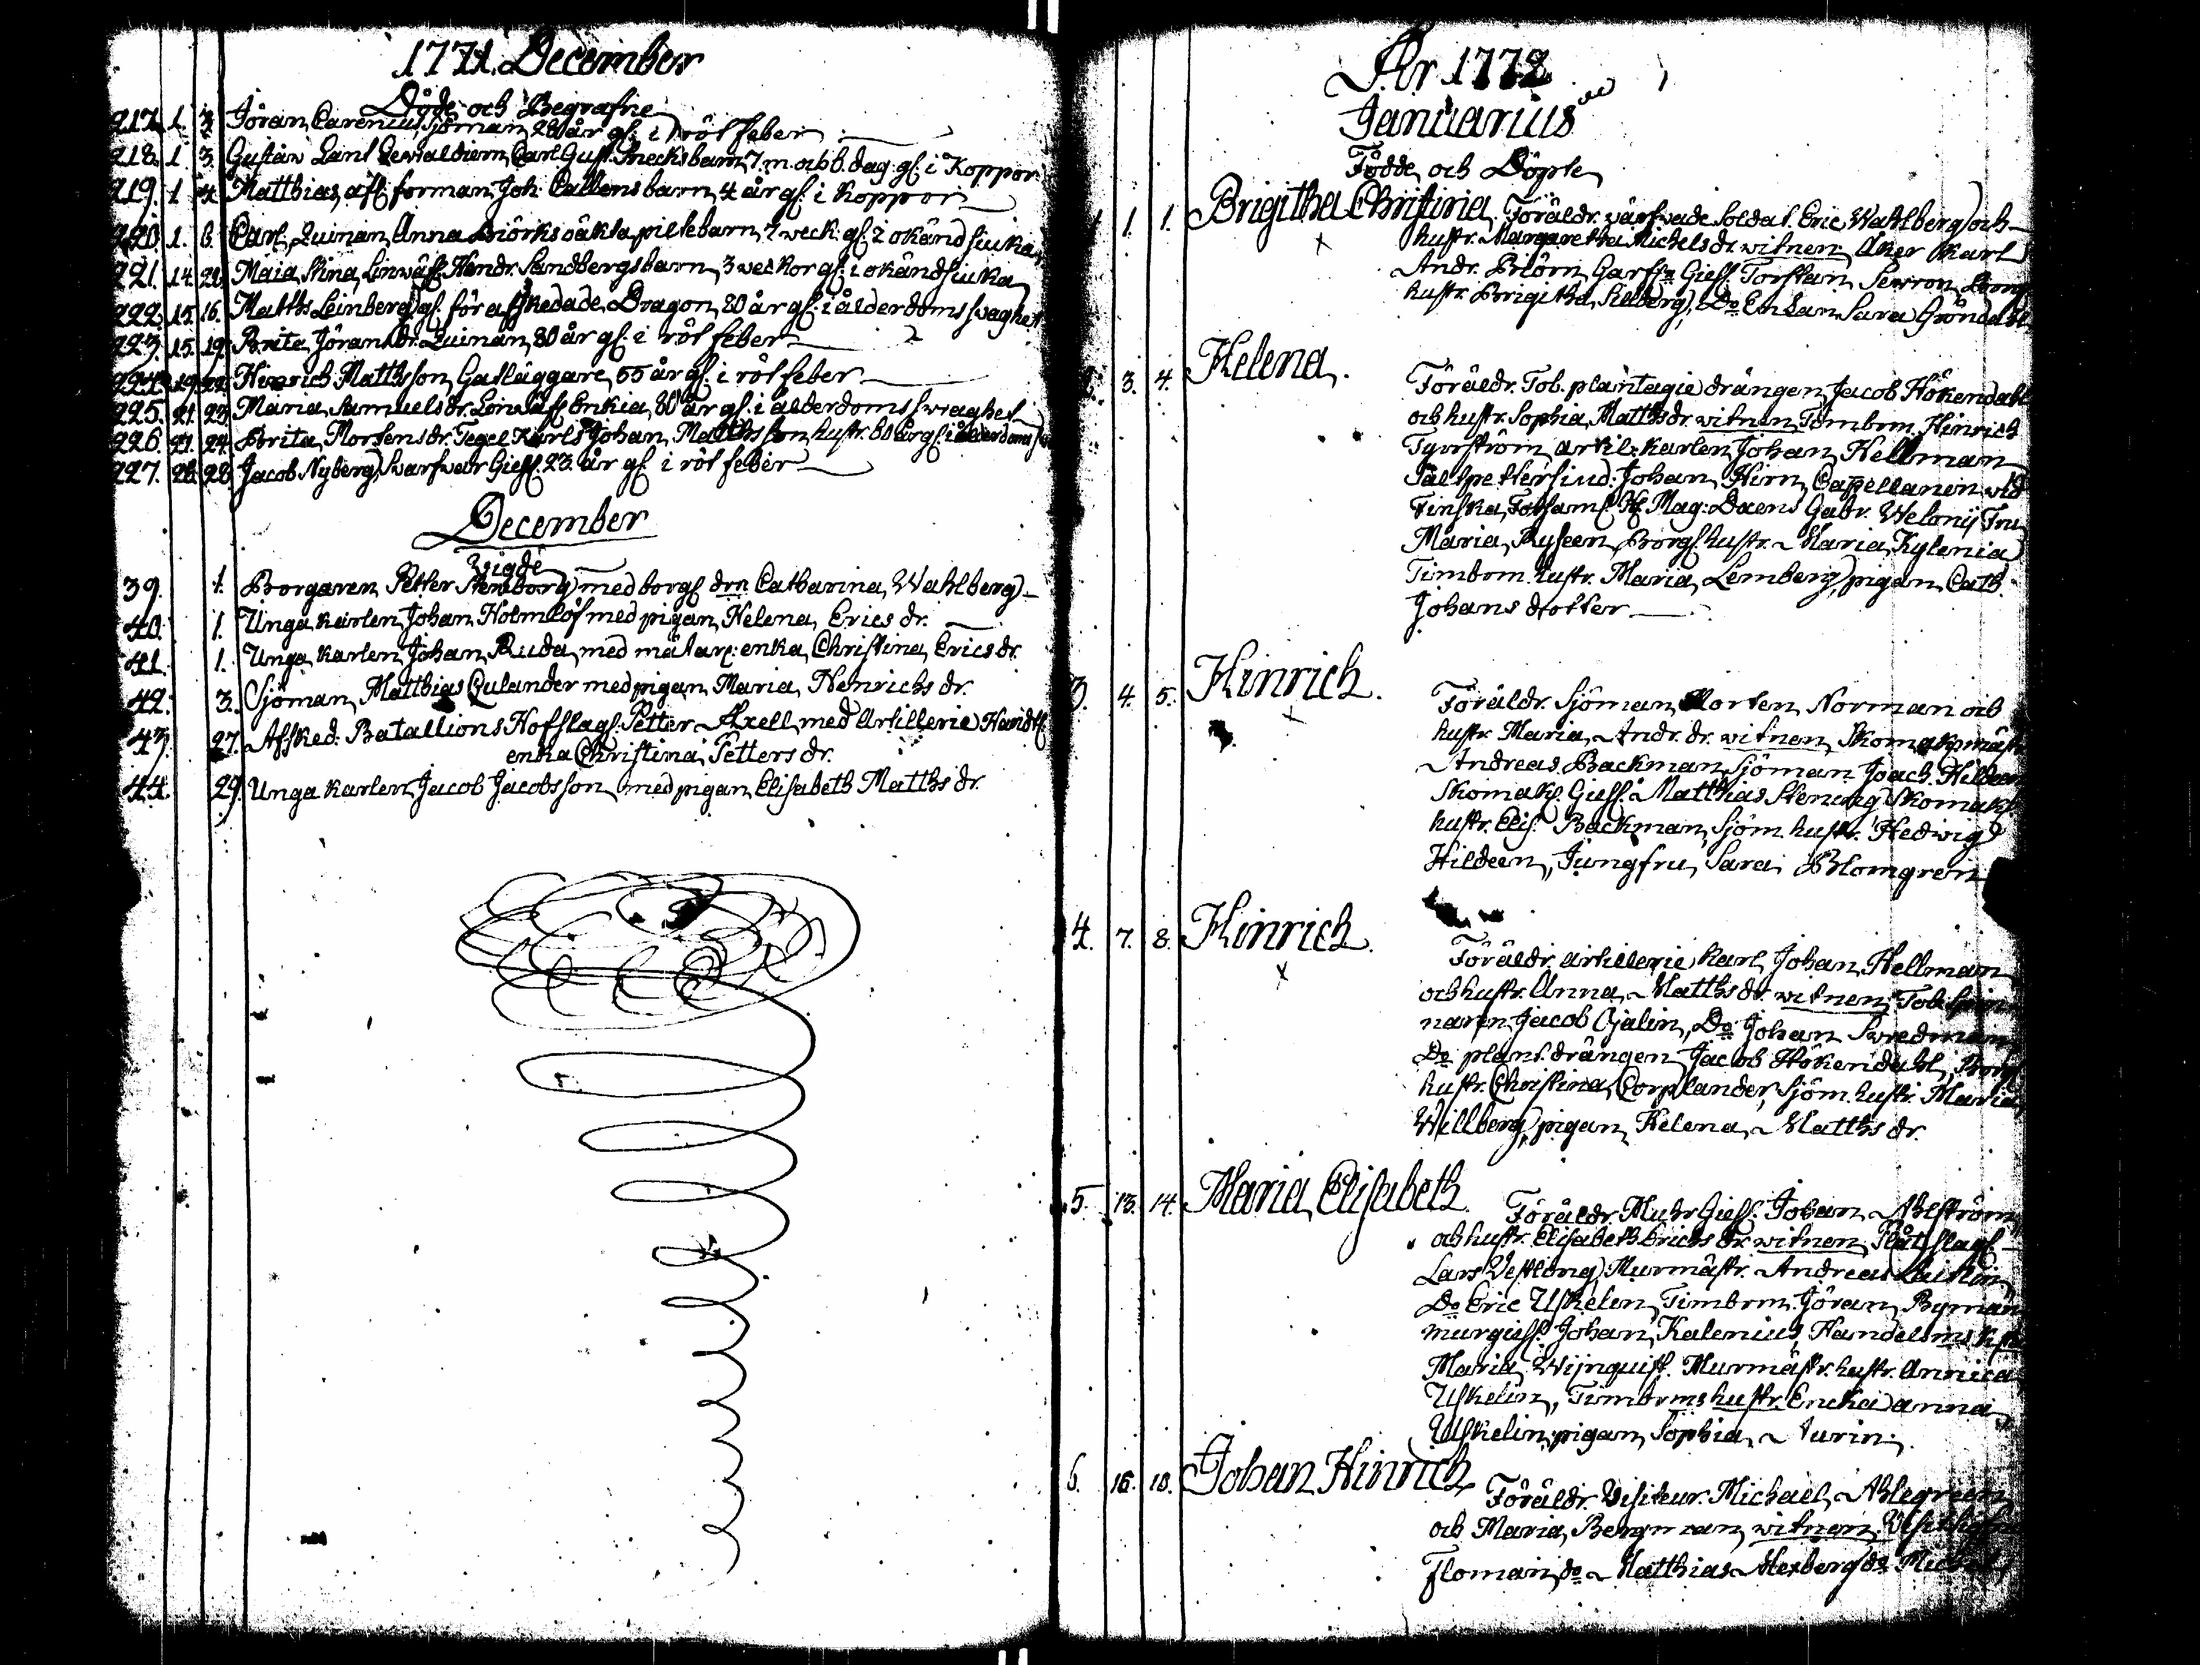 1771. December
Döde och Begrafne
217. 1. 3. Jöran Carenius, sjöman, 28 år gl. i rötfeber
218. 1. 3. Gustav barn, 7 m. och 6. dag. gl. i Koppor
219. 1. 4. Matthias, afl. forman Joh: Callens barn, 4 år gl. i koppor
220. 1. 6. Carl, Quinan Anna Biörks oäkta piltebarn, 7 weck. gl. i okänd siuka
221. 14. 22. Maia Stina, Linwäf. Hendr. Sandbergs barn, 3 weckor gl. i okänd siuka
222. 15. 16. Matths Leinberg, gl. för afskedade Dragon, 80 år gl. i ålderdoms swaghet
223. 15. 19. Brita Jörans dr. Quinan, 80 år gl. i rötfeber
224. 19. 22. Hinrich Mattsson Gatläggare, 55 år gl. i rötfeber
225. 21. 23. Maria Samuels dr. Enkia, 80 år gl. i ålderdoms swaghet
226. 21. 24. Brita Mortens dr. Tegel Karls Johan Matthsson hustr. 60 år gl. i ålderdoms
227. 26. 28. Jacob Nyberg, Swarfwar Giesl. 23. år gl. i rötfeber
December
Wigde
39. 1. Borgaren Petter Stenborg med borgs. drn Catharina Wahlberg
40. 1. Unga karlen Johan Holmlöf med pigan Helena Erics dr.
41. 1. Unga karlen Johan Ruda, med mätare: enka, Christina Erics dr.
42. 3. Sjöman Matthias Culander med pigan Maria Henrichs dr.
43. 27. Afsked. Batallions Hofslag. Petter Axell med Artillerie Handtl.
enka Christina Petters dr.
44. 29. Unga karlen Jacob Jacobsson med pigan Elisabeth Matths dr.
År 1772
Januarius
Födde och Döpte
1. 1. Brigitha Christina Föräldr. wärfwade Soldat. Eric Wahlberg och
hustr. Margaretha Michels dr. witnen Åker Karl
Andr. Biörn, Giesl. Torstan
hustr. Brigitha, Do Enkan Sara Gröndahl
3. 4. Helena. Föräldr. Tob. plantagie drängen Jacob Hökendahl
och hustr. Sophia Matths dr. witnen Timbrm. Hinrich
Tyrström artil: karlen Johan Hellman
Sältpettersiud: Johan Hirn, Capellanen wid
Finska Mag: Gabr. Welonij Fru
Maria Ryseen, Borgs. hustr. Maria Kylenia
Timbrm. hustr. Maria Lemberg, pigan Cath.
Johans dotter
3. 4. 5. Hinrich. Föräldr. Sjöman Morten Norman och
hustr. Maria Andr. dr. witnen Skomakmäst.
Andreas Backman Sjöman Joach. Hildeen
Skomak. Giesl. Matthias Skomaks.
hustr. Elis. Backman, Sjöm. hustr. Hedwig
Hildeen, Jungfru Sara Blomgren
4. 7. 8. Hinrich. Föräldr. artillerie karl Johan Hellman
och hustr. Anna Matths dr. witnen Tob. Spin-
naren Jacob Do Johan Swedman
Do plant. drängen Jacob Hökendahl, Borgs.
hustr. Christina Sjöm. hustr. Maria
Willberg, pigan Helena Matths dr.
5. 13. 14. Maria Elisabeth. Föräldr. Mur Giesl. Johan Ahlström
och hustr. Elisabeth Erichs dr. witnen Plåtslag.
Lars Murmästr. Andreas
Do Eric Uskelin, Timbrm. Jöran Ryman
murgiesl. Johan Kalenius, Handelsms
Maria Wijnquist. Murmästr. hustr. Annica
Uskelin, Timbrms hustr. Encka anna
Uskelin, pigan Sophia Turin.
6. 16. 18. Johan Hinrich Föräldr. Visiteur Michael Ahlegreen
och Maria Bergman, witnen
Floman, do Matthias do